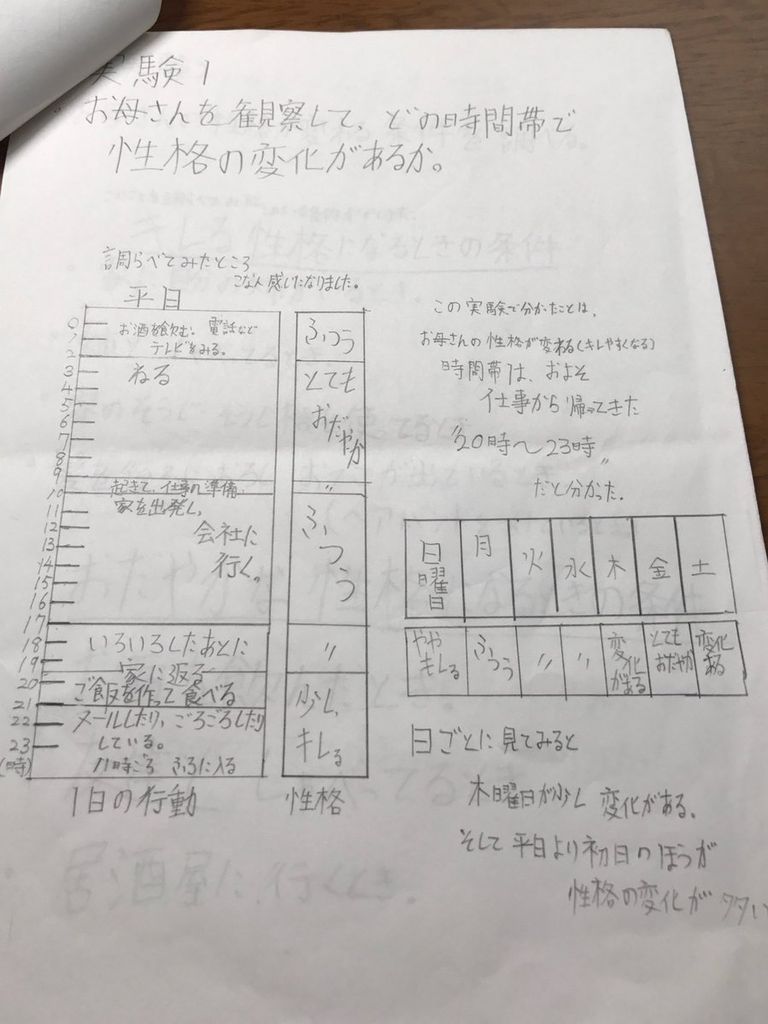 実験1
お母さんを観察して、どの時間帯で
性格の変化があるか。
調らべてみたところ
こな人感じになりました。
平日
0
1
2
3
4
5
6
7
8
9
10
11
12
13
14
15
16
17
18
19
20
21
22
23
(時)
お酒を飲む。電話など
テレビをみる。
ねる
起きて、仕事の準備、
家を出発し、
会社に
行く。
いろいろしたあとに
家に返る
ご飯を作って食べる
メールしたり、ごろごろしたり
している。
11時ごろ ふろに入る
1日の行動
ふつう
とても
おだやか
〃
ふつう
〃
少し、
キレる
性格
この実験で分かたことは、
お母さんの性格が変わる(キレやすくなる)
時間帯は、およそ
仕事から帰ってきた
"20時〜23時"
だと分かった。
日曜日 月 火 水 木 金 土
ややキレる ふつう 〃 〃 変化がある とてもおだやか 変化ある
日ごとに見てみると
木曜日が少し変化がある。
そして平日より初日のほうが
性格の変化が多い